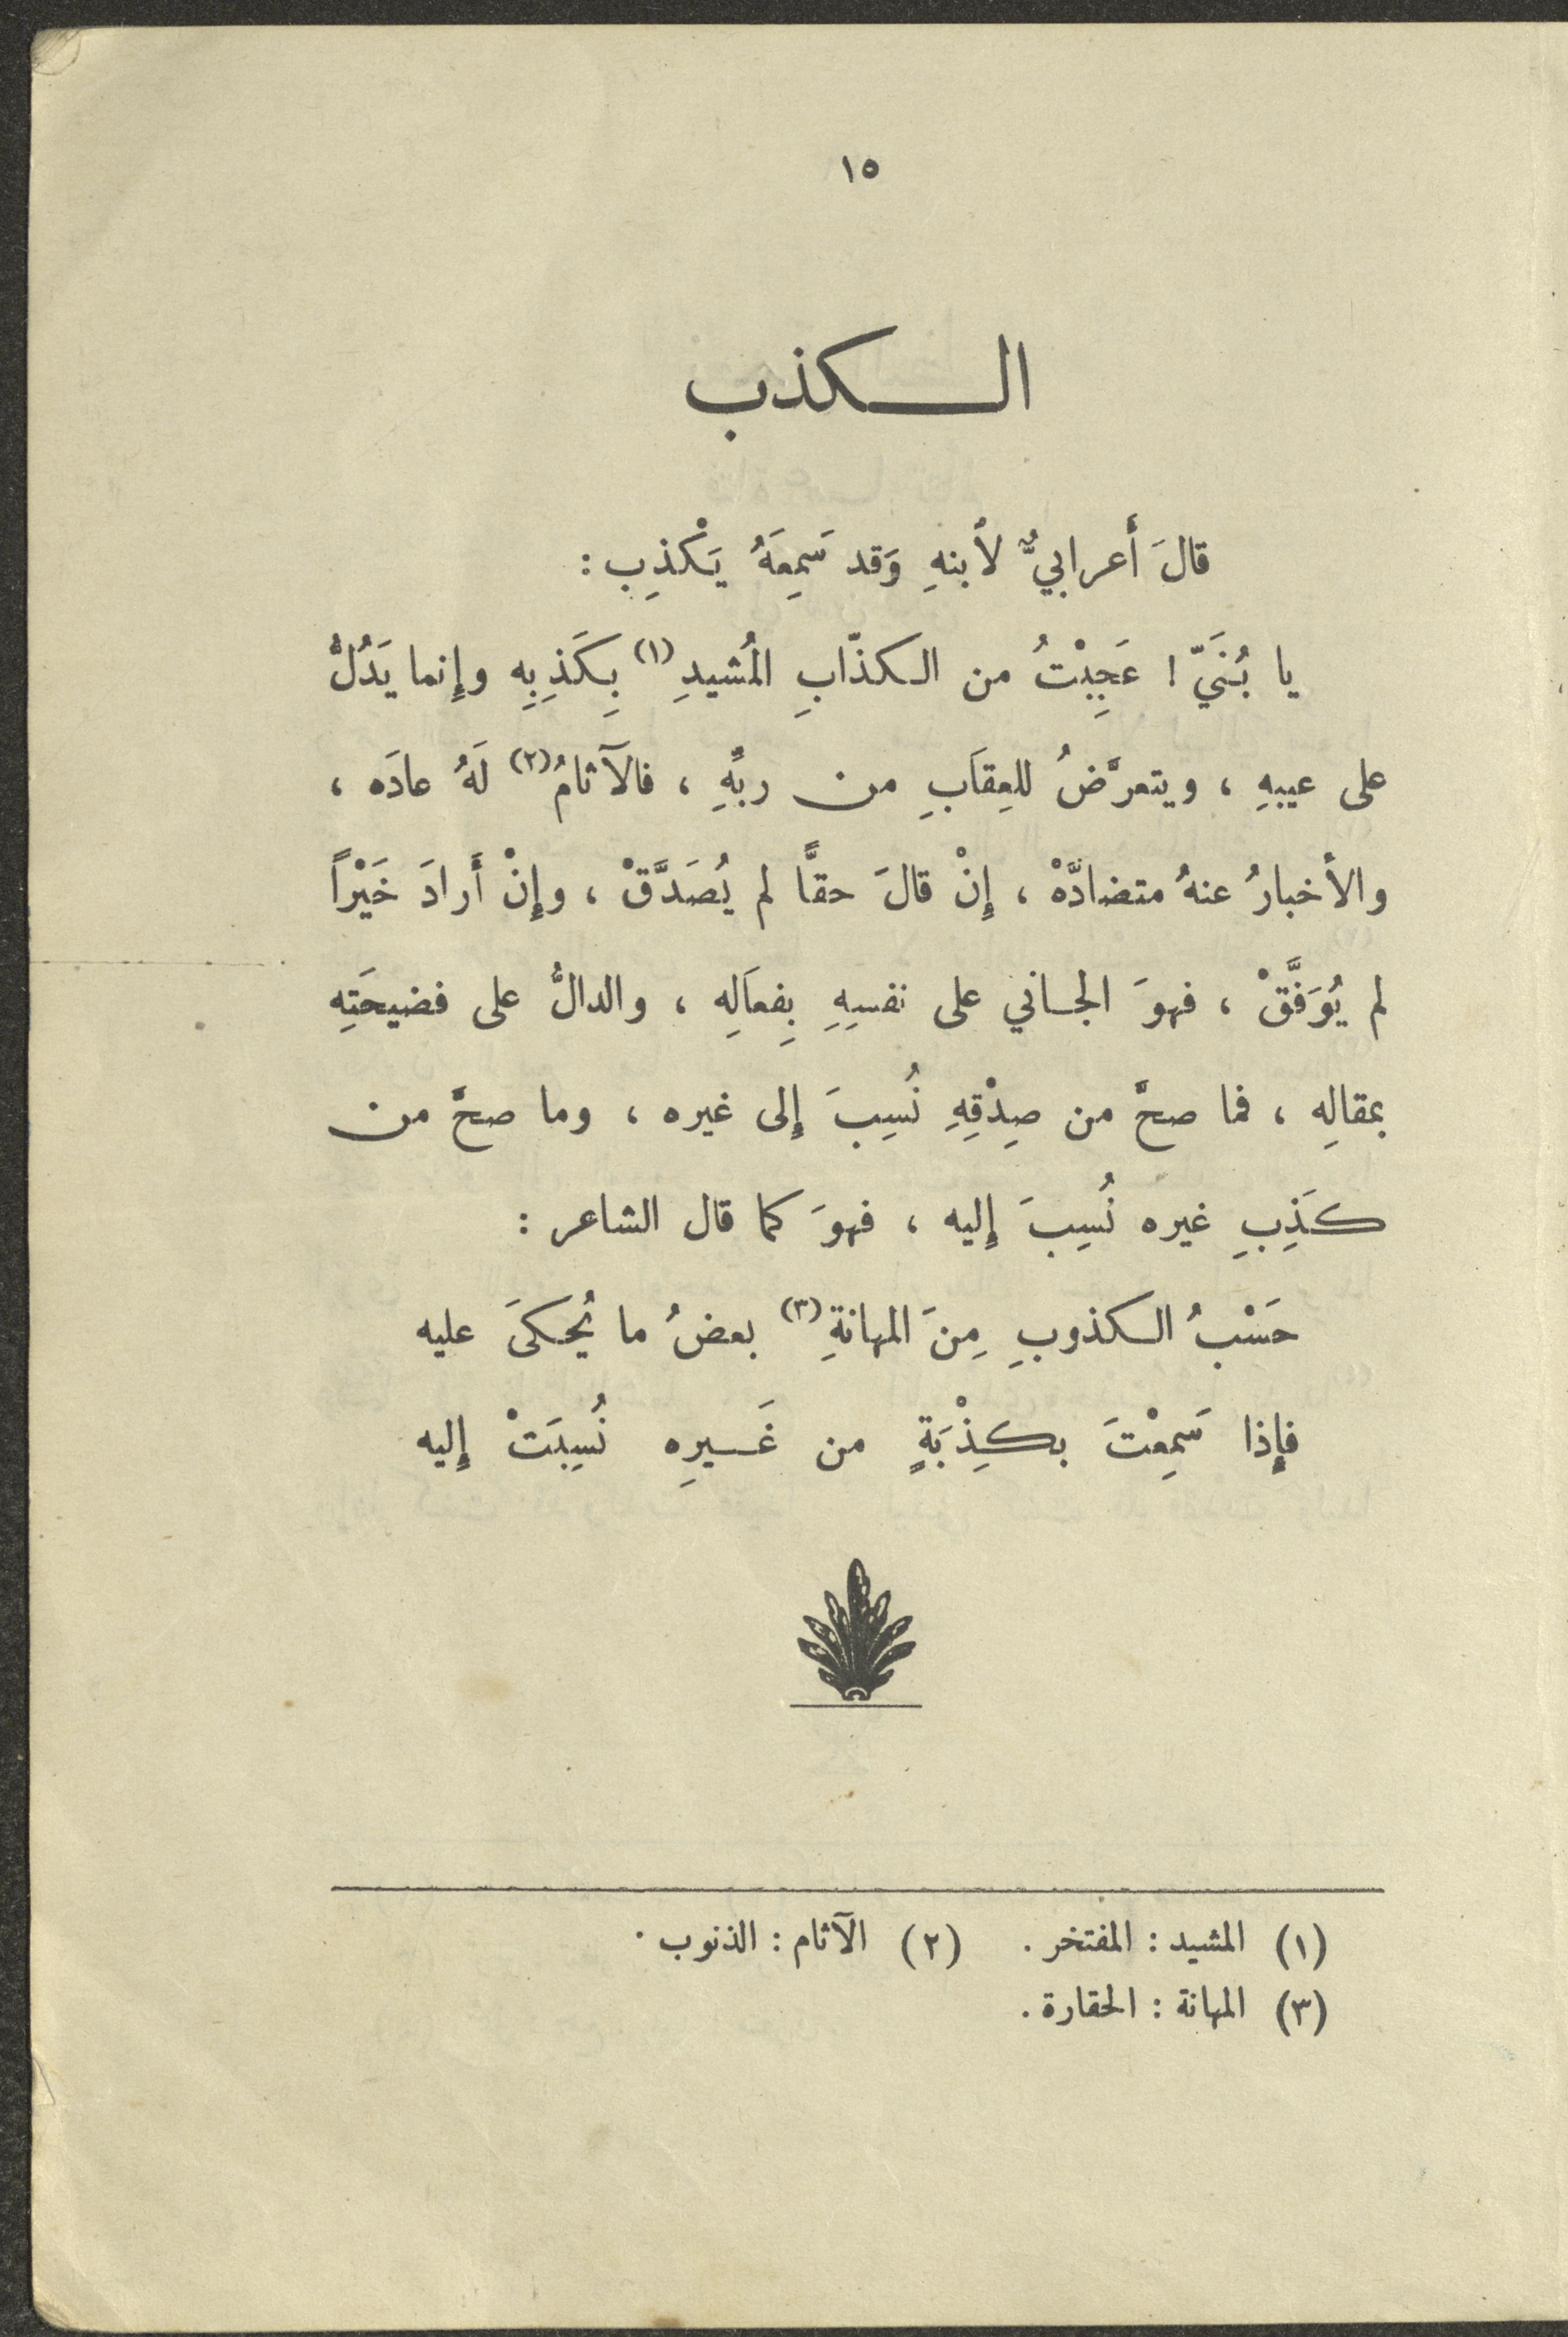 ١٥
الكذب
قالَ أَعرابيٌّ لأبنهِ وَقد سَمِعَهُ يَكْذِب :
يا بُنَيّ ! عَجِبْتُ من الكذّابِ المُشيدِ (١) بِكَذِبِهِ وإِنما يَدُلُّ
على عيبهِ ، ويتعرَّضُ للعِقَابِ من ربِّهِ ، فالآثامُ (٢) لَهُ عادَه ،
والأخبارُ عنهُ متضادَّهْ ، إِنْ قالَ حقًّا لم يُصَدَّقْ ، وإِنْ أَرادَ خَيْراً
لم يُوَفَّقْ ، فهوَ الجاني على نفسِهِ بِفعَالِه ، والدالُّ على فضيحَتِه
بمقالِه ، فما صحَّ من صِدْقِهِ نُسِبَ إِلى غيره ، وما صحَّ من
كَذِبِ غيره نُسِبَ إِليه ، فهوَ كما قال الشاعر :
حَسْبُ الكذوبِ مِنَ المهانةِ (٣) بعضُ ما يُحكىَ عليه
فإِذا سَمِعْتَ بكِذْبَةٍ من غَيرِه نُسِبَتْ إِليه
(١) المشيد : المفتخر . (٢) الآثام : الذنوب .
(٣) المهانة : الحقارة .